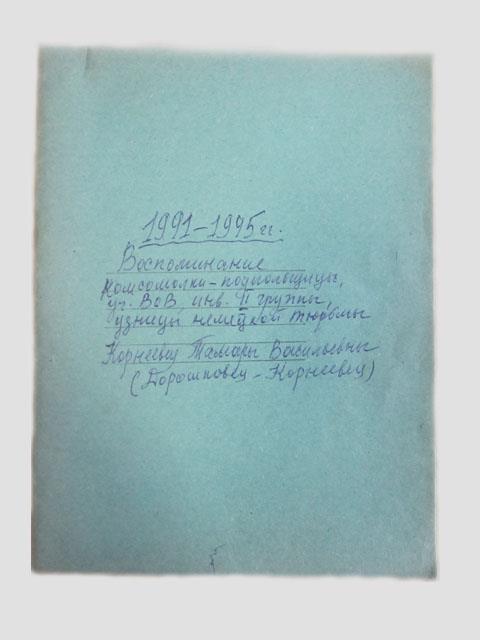 1991–1995 гг.
Воспоминание
Комсомолки-подпольщицы,
уч. ВоВ, инв. II группы,
узницы немецкой тюрьмы
Корнеевец Тамары Васильевны
(Дорошковец – Корнеевец)